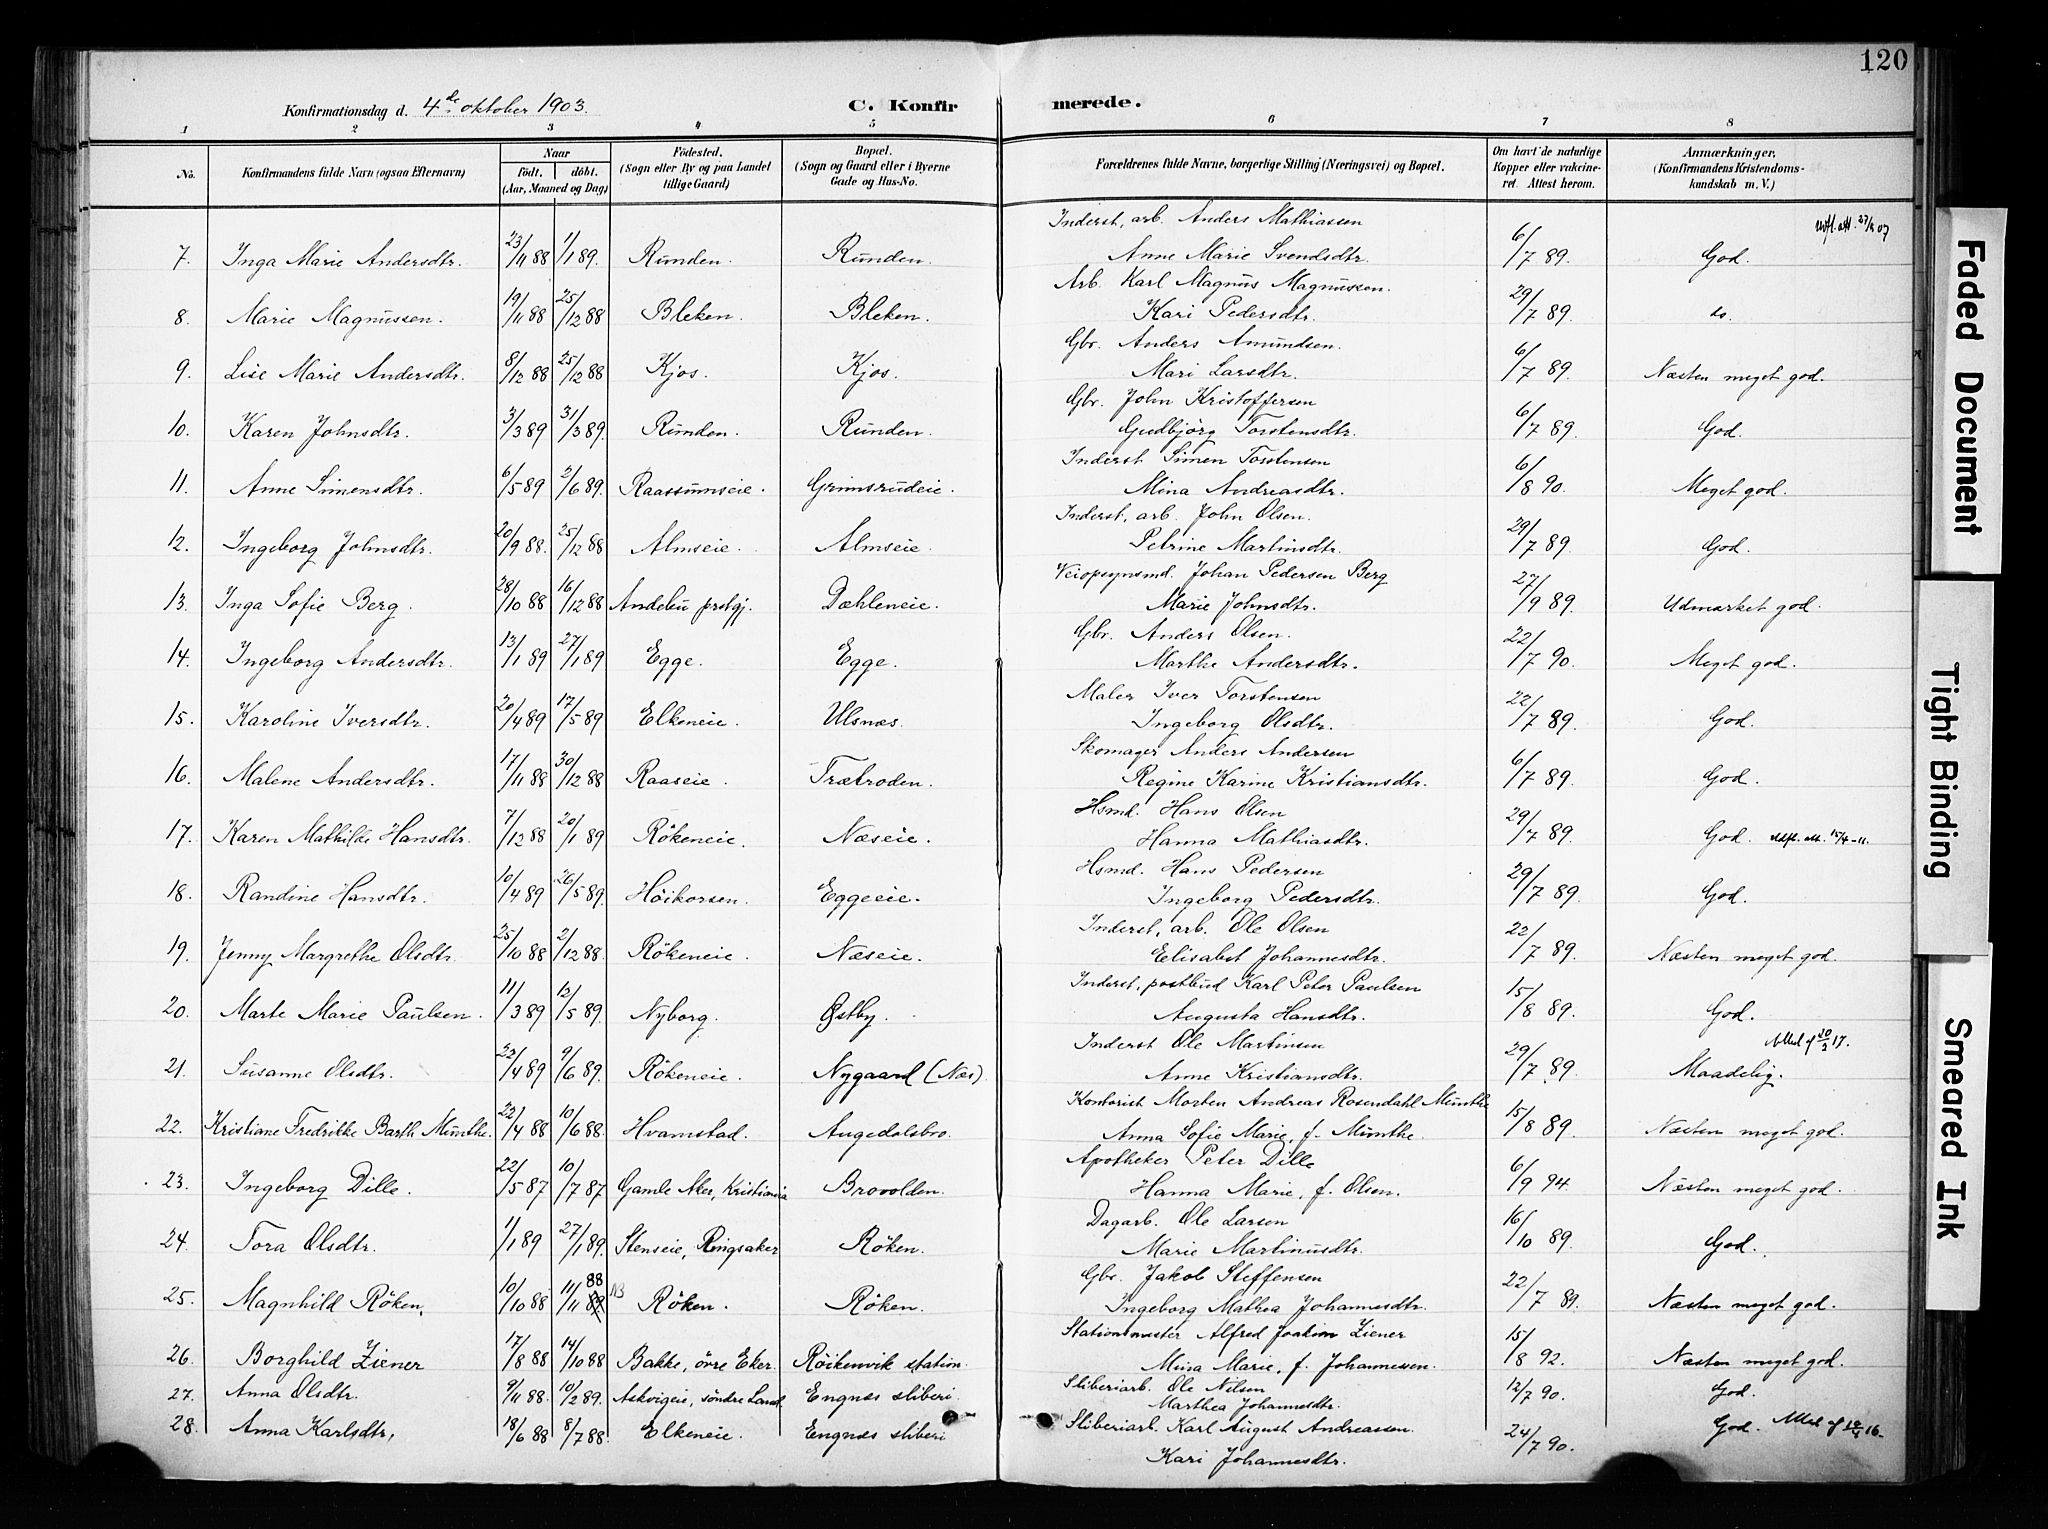 120
Konfirmationsdag d. 4de oktober 1903.
C. Konfirmerede.
1 2 3 4 5 6 7 8
No. Konfirmandens fulde Navn (ogsaa Efternavn) Naar født. døbt. (Aar, Maaned og Dag) Fødested. (Sogn eller By og paa Landet tillige Gaard) Bopæl. (Sogn og Gaard eller i Byerne Gade og Hus-No. Forældrenes fulde Navne, borgerlige Stilling (Næringsvei) og Bopæl. Om havt de naturlige Kopper eller vakcineret. Attest herom. Anmærkninger. (Konfirmandens Kristendomskundskab m. V.)
Inderst, arb. Anders Mathiassen
7. Inga Marie Andersdtr. 23/11 88 1/1 89. Runden. Runden. Anne Marie Svendsdtr. 6/7 89. God.
Arb. Karl Magnus Magnussen.
8. Marie Magnussen. 19/11 88 25/12 88 Bleken. Bleken. Kari Pedersdtr. 29/7 89. do.
Gbr. Anders Amundsen.
9. Lise Marie Andersdtr. 8/12 88 25/12 88 Kjos. Kjos. Mari Larsdtr. 6/7 89. Næsten meget god.
Gbr. John Kristoffersen
10. Karen Johnsdtr. 3/3 89 31/3 89. Runden. Runden. Gudbjörg Torstensdtr. 6/7 89. God.
Inderst Simen Torstensen
11. Anne Simensdtr. 6/5 89 2/6 89. Raassumseie. Grimsrudeie. Mina Andreasdtr. 6/8 90. Meget god.
Inderst, arb. John Olsen.
12. Ingeborg Johnsdtr. 20/9 88. 25/12 88 Almseie. Almseie. Petrine Martinsdtr. 29/7 89. God.
Veiopsynsmd. Johan Pedersen Berg
13. Inga Sofie Berg. 28/10 88 16/12 88 Andebu prstgj. Dæhleneie. Marie Johnsdtr. 27/9 89. Udmærket god.
Gbr. Anders Olsen.
14. Ingeborg Andersdtr. 13/1 89 27/1 89 Egge. Egge. Marthe Andersdtr. 22/7 90. Meget god.
Maler Iver Torstensen
15. Karoline Iversdtr. 20/4 89 17/5 89 Elkeneie. Ulsnæs. Ingeborg Olsdtr. 22/7 89. God.
Skomager Anders Andersen
16. Malene Andersdtr. 17/11 88 30/12 88 Raaseie. Trætroden. Regine Karine Kristiansdtr. 6/7 89. God.
Hsmd. Hans Olsen
17. Karen Mathilde Hansdtr. 7/12 88 20/1 89 Rökeneie. Næseie. Hanna Mathiasdtr. 29/7 89. God. Udfl. att. 15/4-11.
Hsmd. Hans Pedersen
18. Randine Hansdtr. 10/4 89 26/5 89. Höikorsen. Eggeeie. Ingeborg Pedersdtr. 29/7 89. God.
Inderst, arb. Ole Olsen
19. Jenny Margrethe Olsdtr. 25/10 88 2/12 88. Rökeneie. Næseie. Elisabet Johannesdtr. 22/7 89. Næsten meget god.
Inderst, postbud Karl Peter Paulsen
20. Marte Marie Paulsen. 11/3 89 12/5 89. Nyborg. Østby. Augusta Hansdtr. 15/8 89. God.
Inderst Ole Martinsen
21. Susanne Olsdtr. 22/4 89 9/6 89. Rökeneie. Nygaard (Næs). Anne Kristiansdtr. 29/7 89. Maadelig.
Kontorist Morten Andreas Rosendahl Munthe
22. Kristiane Fredrikke Barth Munthe. 22/4 88 10/6 88. Hvamstad. Augedalsbro. Anna Sofie Marie, f. Munthe. 15/8 89. Næsten meget god.
Apotheker Peter Dille
23. Ingeborg Dille. 22/5 87 10/7 87 Gamle Aker, Kristiania Brovolden. Hanna Marie, f. Olsen. 6/9 94. Næsten meget god.
Dagarb. Ole Larsen
24. Tora Olsdtr. 1/1 89 27/1 89. Stenseie, Ringsaker Röken. Marie Martinusdtr. 16/10 89. God.
Gbr. Jakob Steffensen
25. Magnhild Röken, 10/10 88 11/11 88 NB Röken. Röken. Ingeborg Mathea Johannesdtr. 22/7 89. Næsten meget god.
Stationmester Alfred Joakim Ziener
26. Borghild Ziener 17/8 88 14/10 88 Bakke, övre Eker. Röikenvik station. Mina Marie, f. Johannessen. 15/8 92. Næsten meget god.
Sliberiarb. Ole Nilsen
27. Anna Olsdtr. 9/11 88. 10/2 89. Askvigeie, söndre Land Engnæs sliberi. Marthea Johannesdtr. 12/7 90. God.
Sliberiarb. Karl August Andreassen.
28. Anna Karlsdtr, 18/6 88 8/7 88. Elkeneie. Engnæs sliberi Kari Johannesdtr. 24/7 90. God.
Faded Document
Tight Binding
Smeared Ink